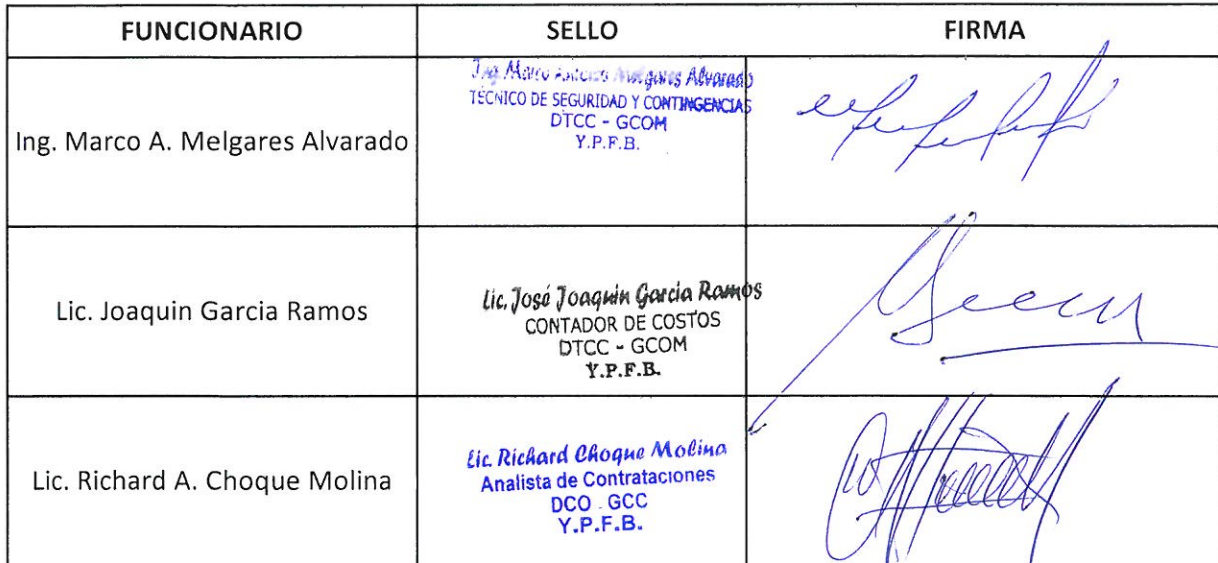 FUNCIONARIO SELLO FIRMA
Ing. Marco A. Melgares Alvarado
Ing. Marco Antonio Melgares Alvarado
TÉCNICO DE SEGURIDAD Y CONTINGENCIAS
DTCC - GCOM
Y.P.F.B.
Lic. Joaquin Garcia Ramos
Lic. José Joaquin Garcia Ramos
CONTADOR DE COSTOS
DTCC - GCOM
Y.P.F.B.
Lic. Richard A. Choque Molina
Lic. Richard Choque Molina
Analista de Contrataciones
DCO - GCC
Y.P.F.B.